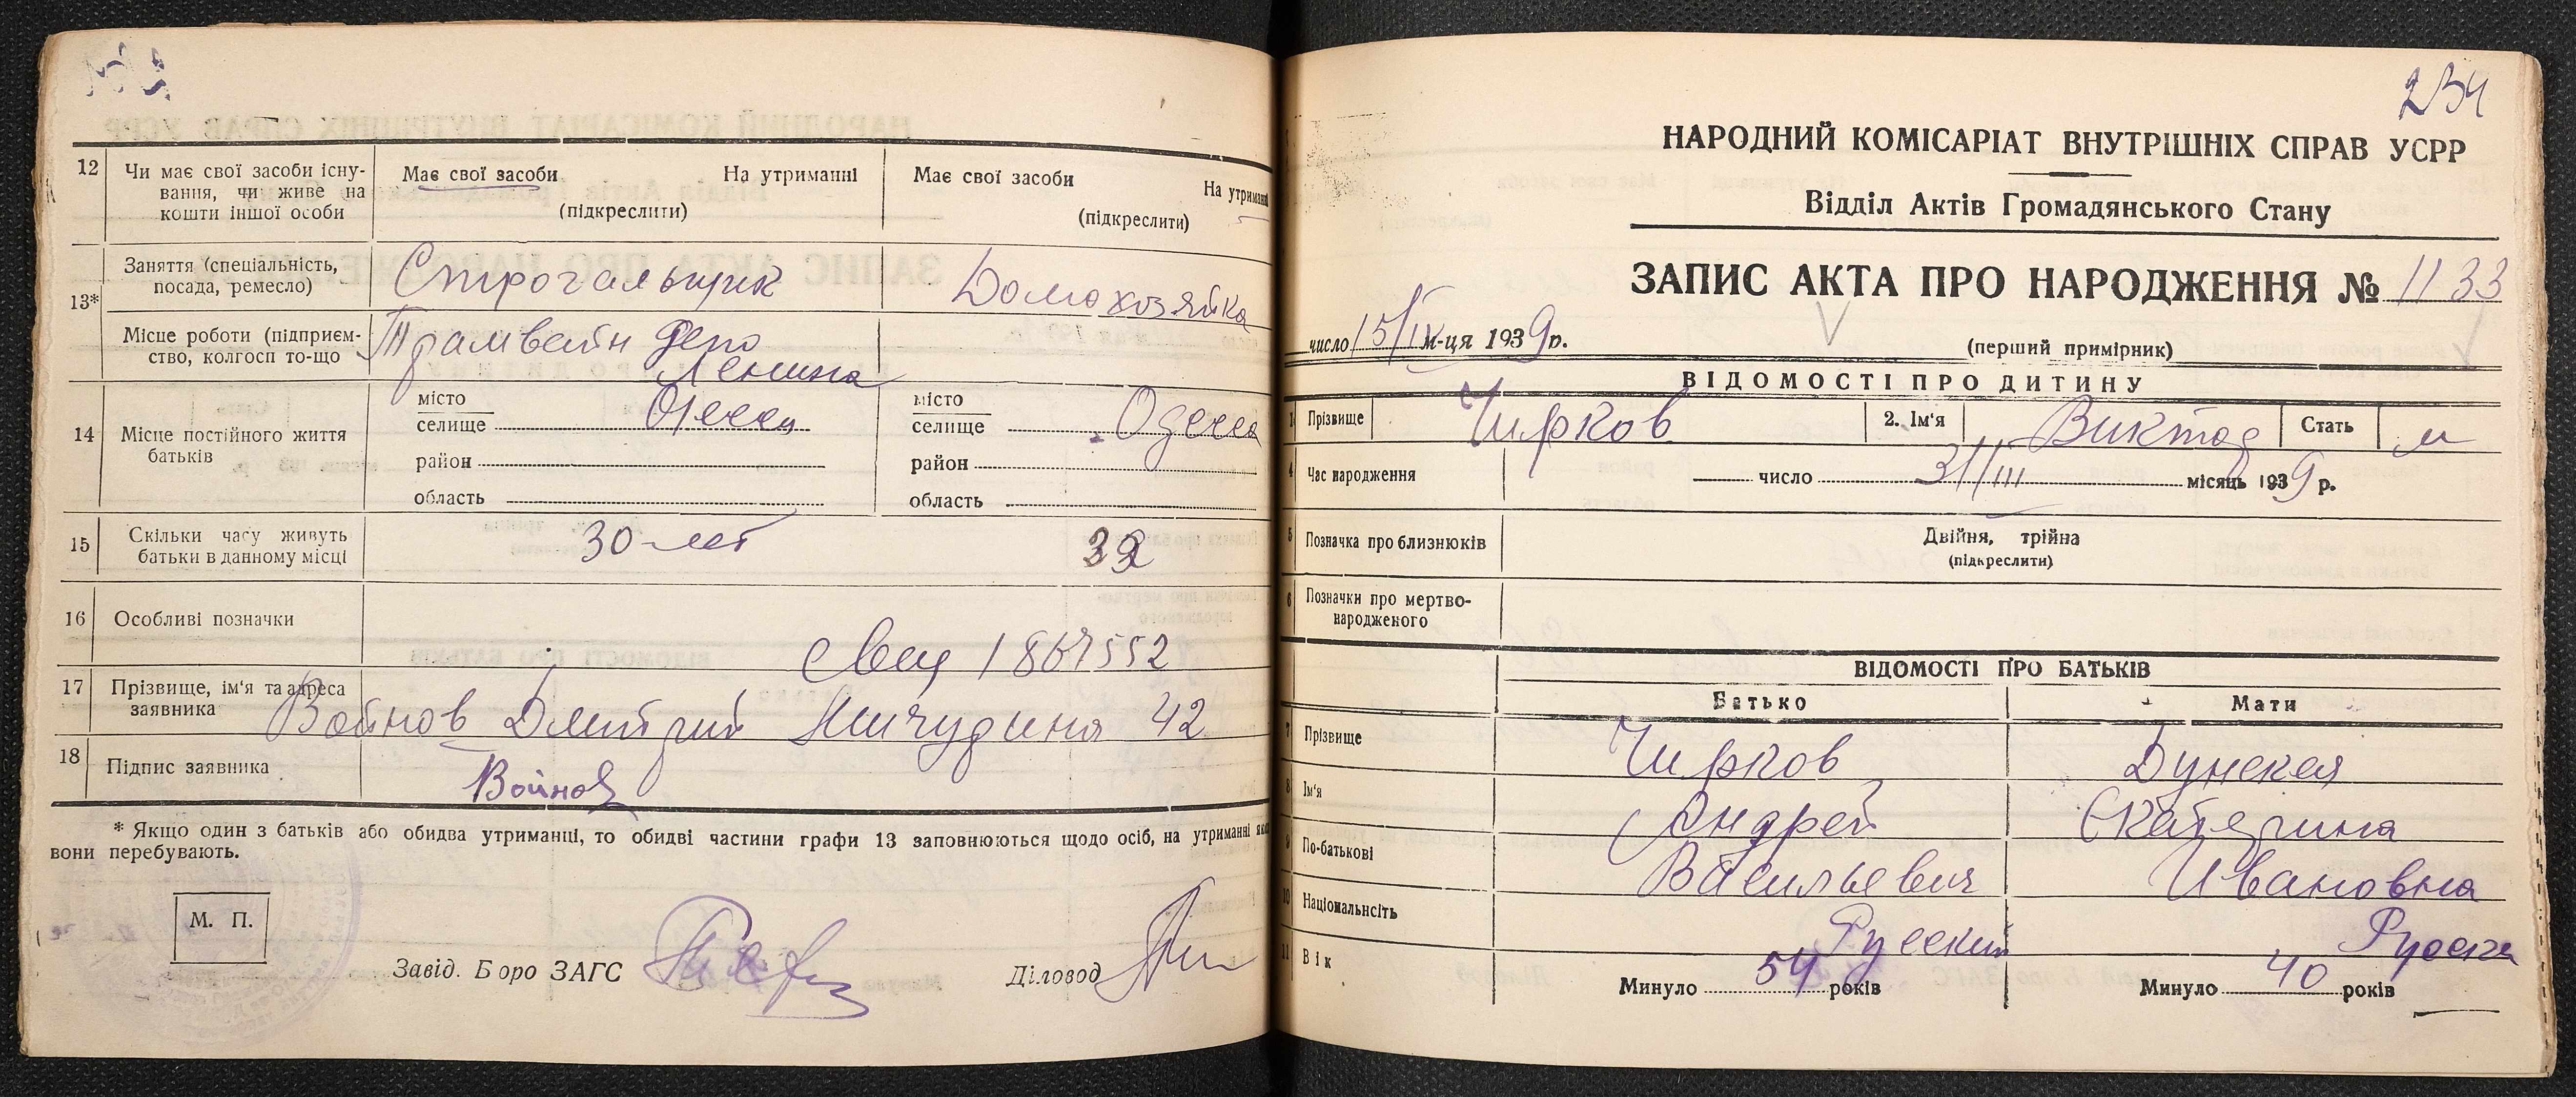 12 Чи має свої засоби існу-
вання, чи живе на
кошти іншої особи
Має свої засоби На утриманні
(підкреслити)
Має свої засоби На утриманні
(підкреслити)
13*
Заняття (спеціальність,
посада, ремесло)
Строгальщик
Домохозяйка
Місце роботи (підприєм-
ство, колгосп то-що
Трамвейн Депо
Ленина
14 Місце постійного життя
батьків
місто
селище Одесса
район
область
місто
селище Одесса
район
область
15 Скільки часу живуть
батьки в данному місці
30 лет
16 Особливі позначки
17 Прізвище, ім'я та адреса
заявника
Войнов Дмитрий Мичурина 42
18 Підпис заявника
Войнов
* Якщо один з батьків або обидва утриманці, то обидві частини графи 13 заповнюються щодо осіб, на утриманні яких
вони перебувають.
М. П.
Завід. Бюро ЗАГС
Діловод
234
НАРОДНИЙ КОМІСАРІАТ ВНУТРІШНІХ СПРАВ УСРР
Відділ Актів Громадянського Стану
ЗАПИС АКТА ПРО НАРОДЖЕННЯ № 1133
число 15/IV м-ця 1939 р.
(перший примірник)
ВІДОМОСТІ ПРО ДИТИНУ
1 Прізвище Чирков 2. Ім'я Виктор Стать м
4 Час народження число 31/III місяць 1939 р.
5 Позначка про близнюків
Двійня, трійна
(підкреслити)
6 Позначки про мертво-
народженого
ВІДОМОСТІ ПРО БАТЬКІВ
Батько Мати
7 Прізвище Чирков Дунская
8 Ім'я Андрей Екатерина
9 По-батькові Васильевич Ивановна
10 Національність Русский Русская
11 Вік Минуло 54 років Минуло 40 років